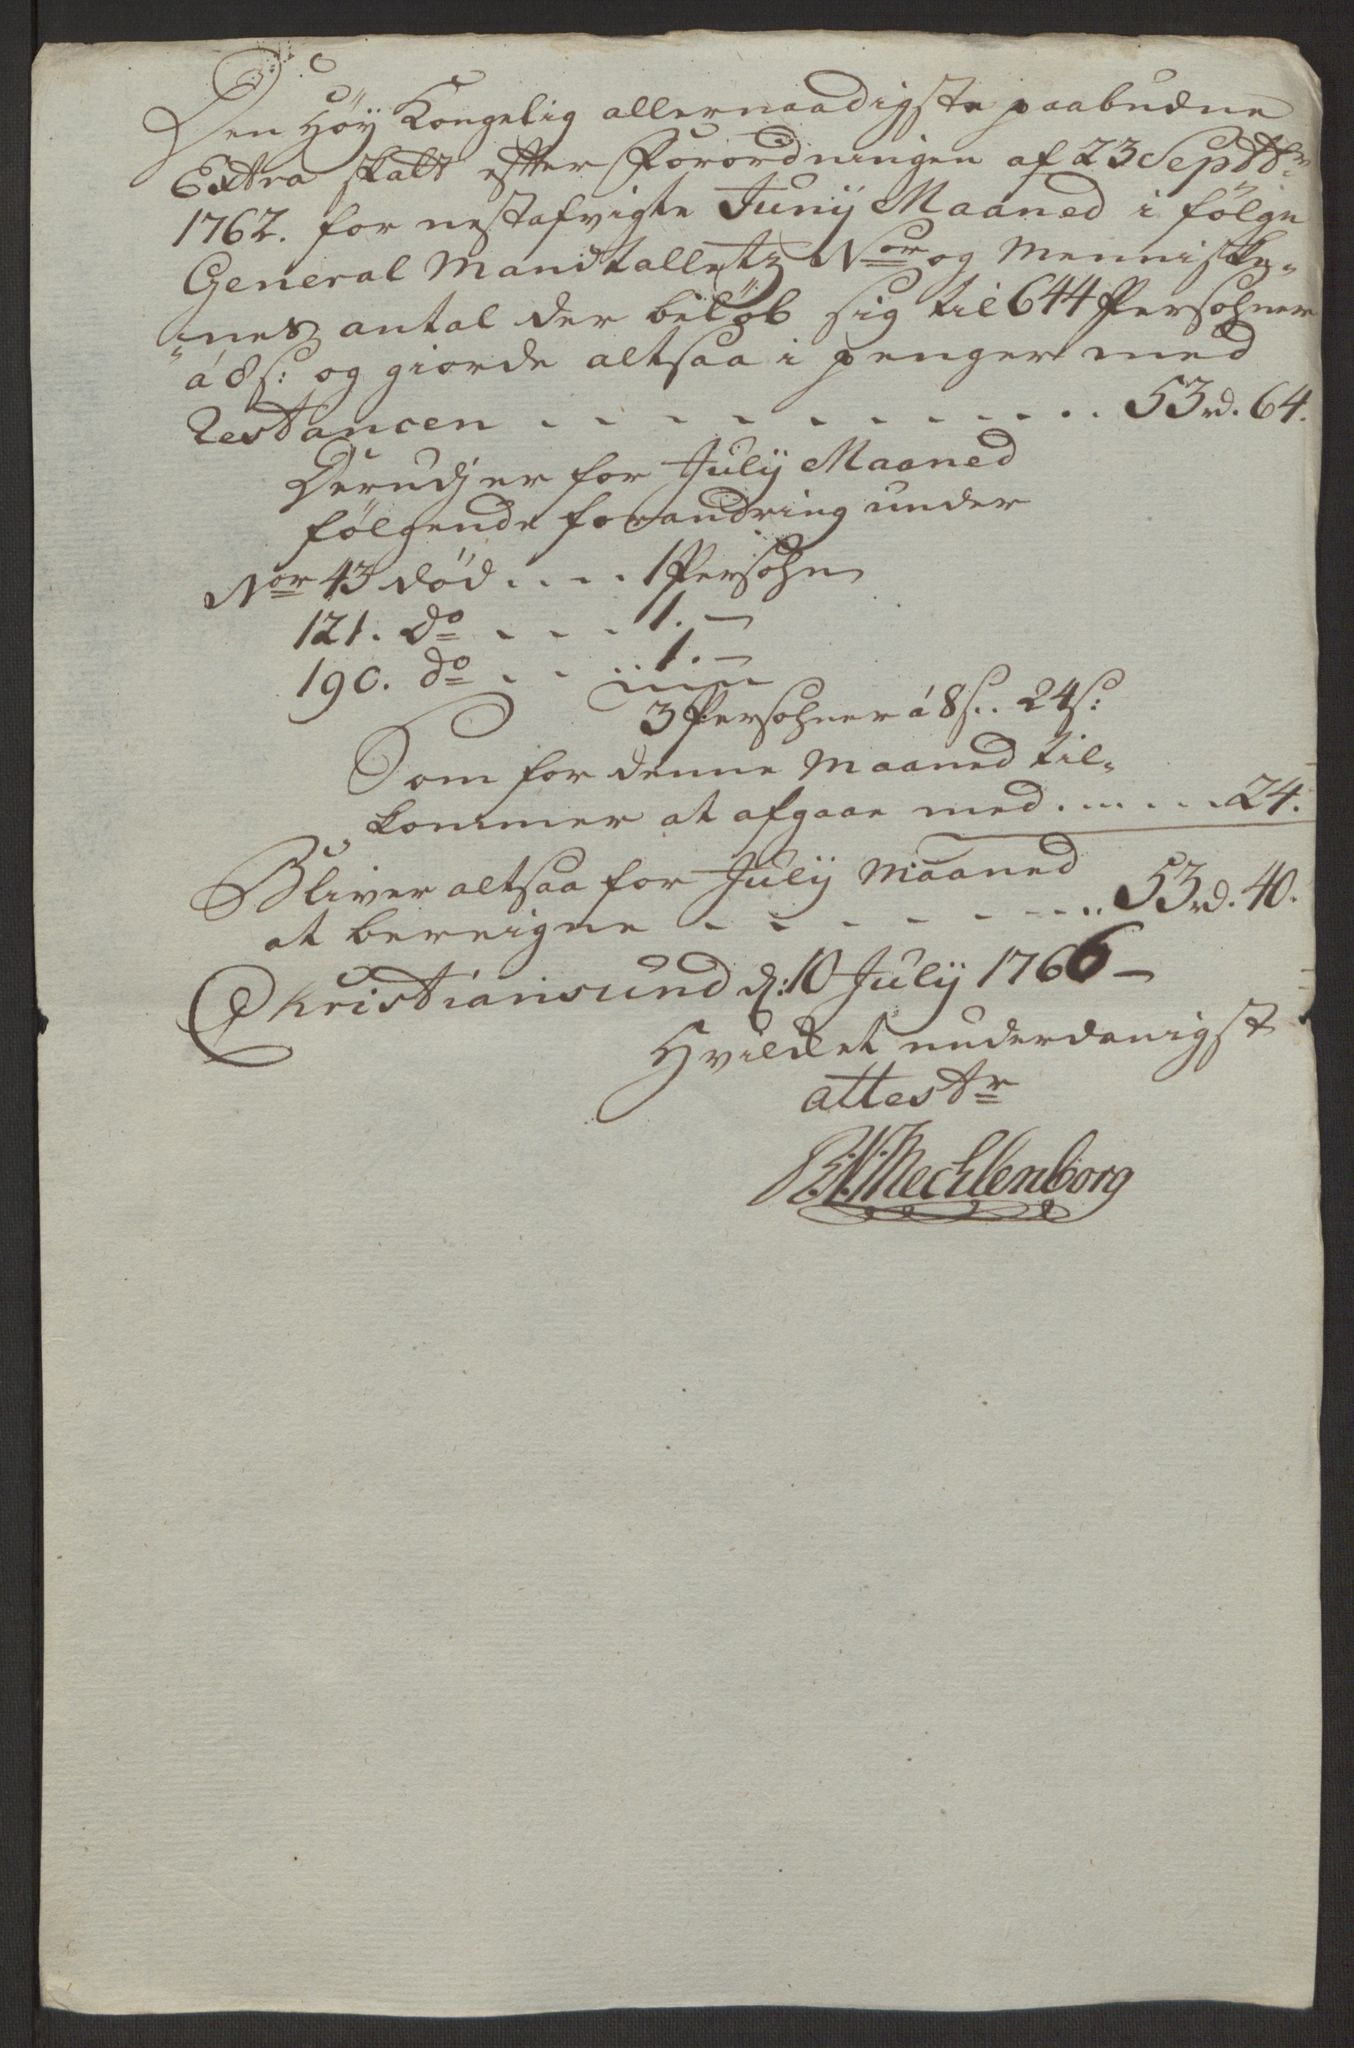 Den Höy Kongelig allernaadigste paabudne
Extra skatt efter Forordningen af 23 Septbr:
1762. for nestafvigte Junij Maaned i fölge
General Mandtalletz Nor og Menniske,,
,,nes antal der beløb sig til 644 Persohner
á 8 s: og giorde altsaa i penger med
Restancen - - - - - - - - - . . 53 rd. 64.
Derudj er for Julij Maaned
fölgende forandring under
Nor 43 död . . . . 1 Persohn
121. do - - - - 1. -
190. do - - - - 1. -
3 Persohner á 8 s. . 24 s:
Som for denne Maaned til,,
kommer at afgaae med . . . . . . . 24.
Bliver altsaa for Julij Maaned
at bereigne - - - - - - - . . 53 rd. 40.
Christiansund d: 10 Julij 1766 -
Hvilket underdanigst
attestr
B. N. Mechlenborg